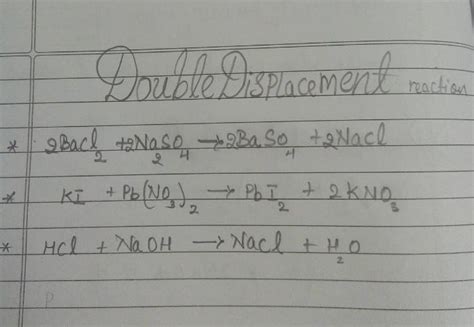 Double Displacement reaction
* 2Bacl₂ + 2Na₂SO₄ → 2BaSO₄ + 2Nacl
* KI + Pb(NO₃)₂ → PbI₂ + 2KNO₃
* HCl + NaOH → Nacl + H₂O
P